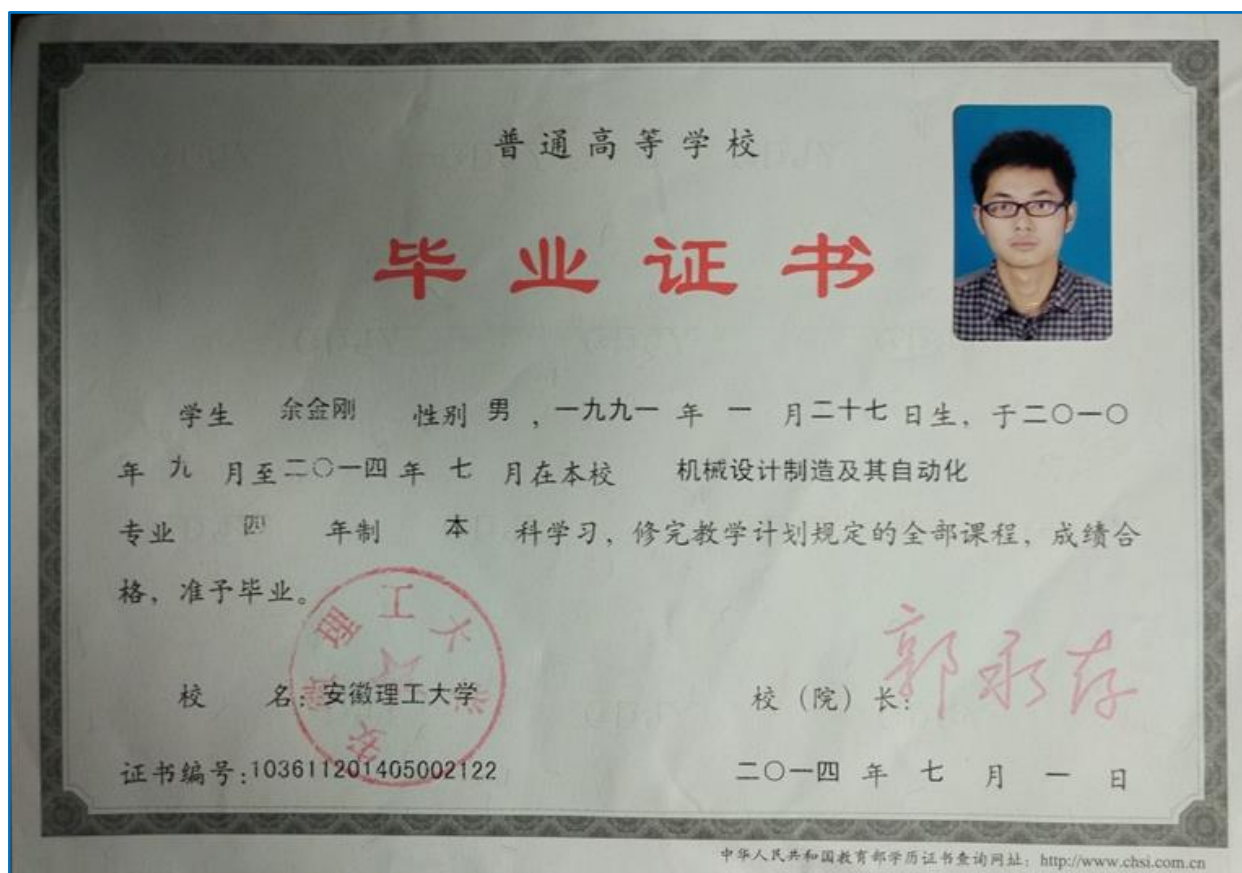 普通高等学校
毕业证书
学生 余金刚 性别 男 ，一九九一 年 一 月二十七 日生，于二〇一〇
年 九 月至二〇一四 年 七 月在本校 机械设计制造及其自动化
专业 四 年制 本 科学习，修完教学计划规定的全部课程，成绩合
格，准予毕业。
安徽理工大学
校 名：安徽理工大学 校（院）长：郭永存
证书编号：103611201405002122 二〇一四 年 七 月 一 日
中华人民共和国教育部学历证书查询网址：http://www.chsi.com.cn